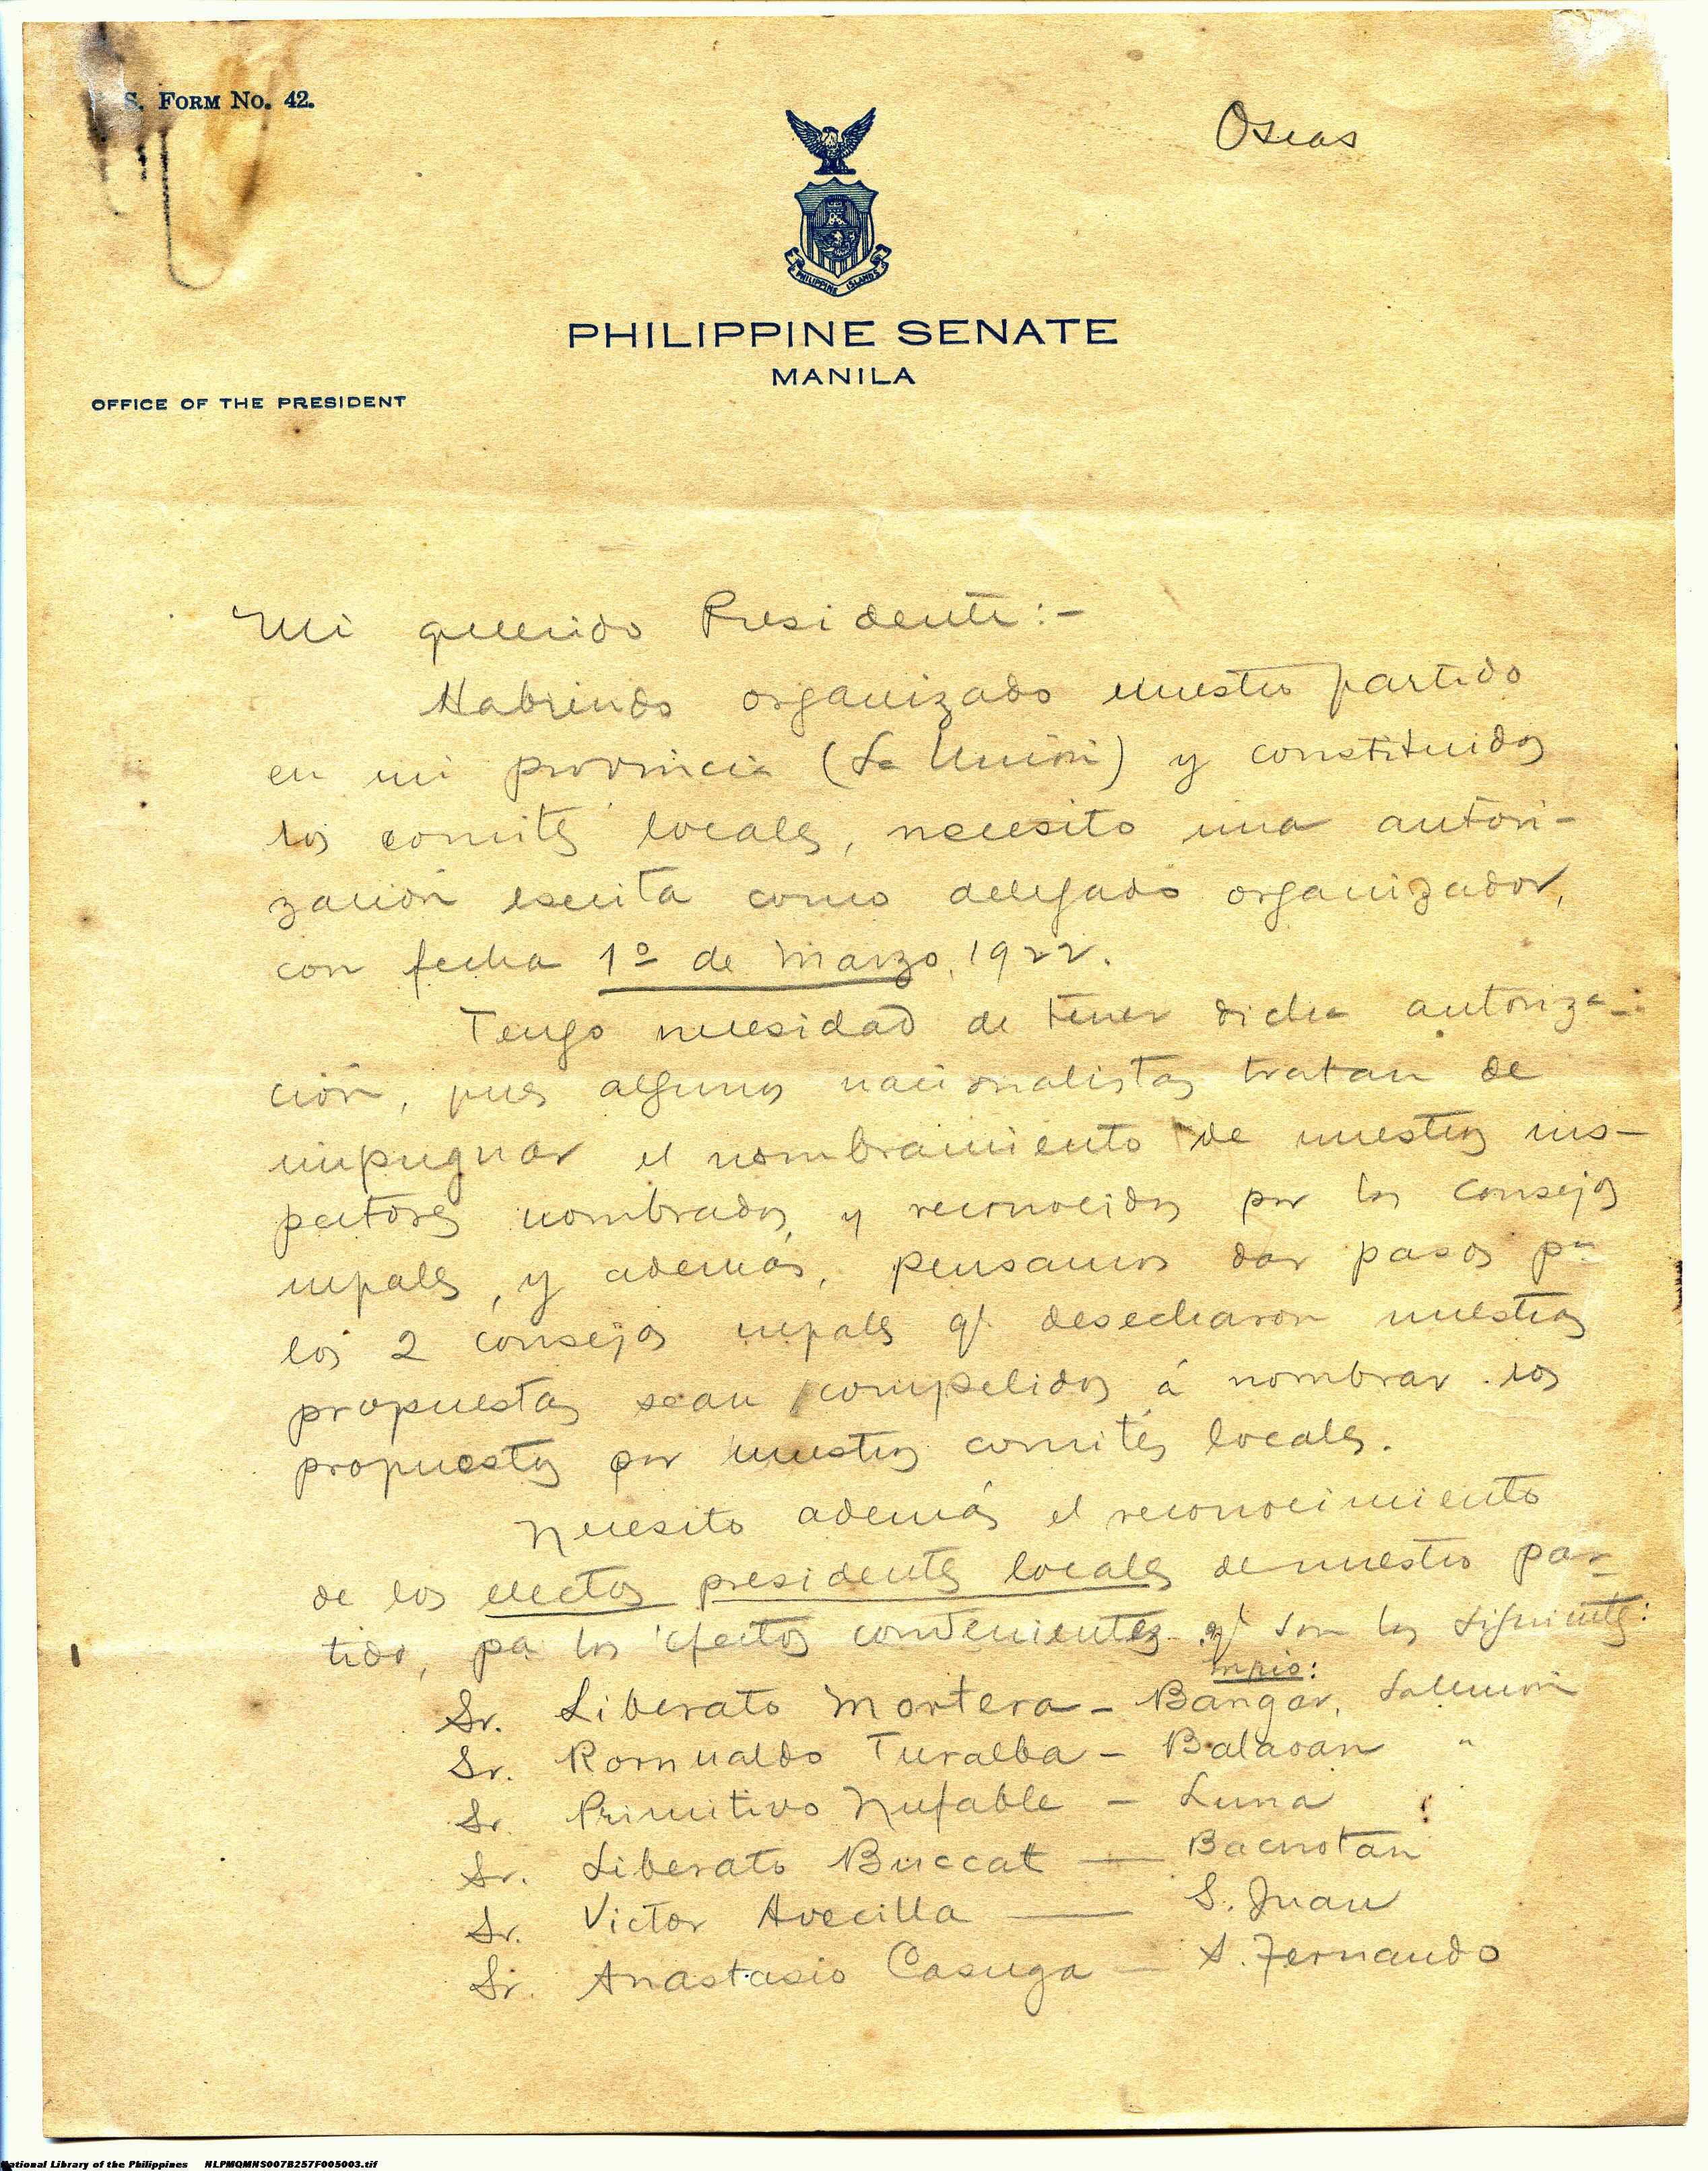 S. FORM No. 42.
Oseas
PHILIPPINE ISLANDS
PHILIPPINE SENATE
MANILA
OFFICE OF THE PRESIDENT
Mi querido Presidente:-
Habiendo organizado nuestro partido
en mi provincia (La Unión) y constituidos
los comités locales, necesito una autori-
zación escrita como delegado organizador,
con fecha 1º de Marzo, 1922.
Tengo necesidad de tener dicha autoriza-
ción, pues algunos nacionalistas tratan de
impugnar el nombramiento de nuestros ins-
pectores nombrados, y reconocidos por los consejos
mpales, y además, pensamos dar pasos pa
los 2 consejos mpales q/ desecharon nuestras
propuestas sean compelidos á nombrar los
propuestos por nuestros comités locales.
Necesito además el reconocimiento
de los electos presidentes locales de nuestro par-
tido, pa los efectos convenientes q/ son los siguientes:
mpio:
Sr. Liberato Mortera - Bangar, La Unión
Sr. Romualdo Turalba - Balaoan "
Sr. Primitivo Nufable - Luna "
Sr. Liberato Buccat — Bacnotan
Sr. Victor Avecilla — S. Juan
Sr. Anastasio Casuga — S. Fernando
National Library of the Philippines NLPMQMNS007B257F005003.tif